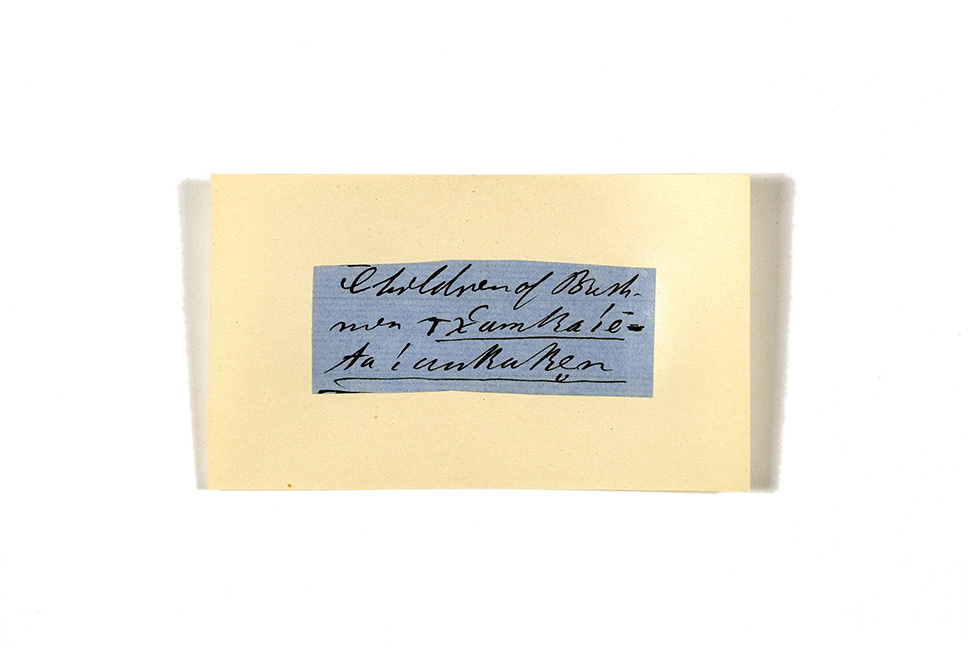 Children of Bush-
men ꞇxamkaǀē=
taǀumkakẹn